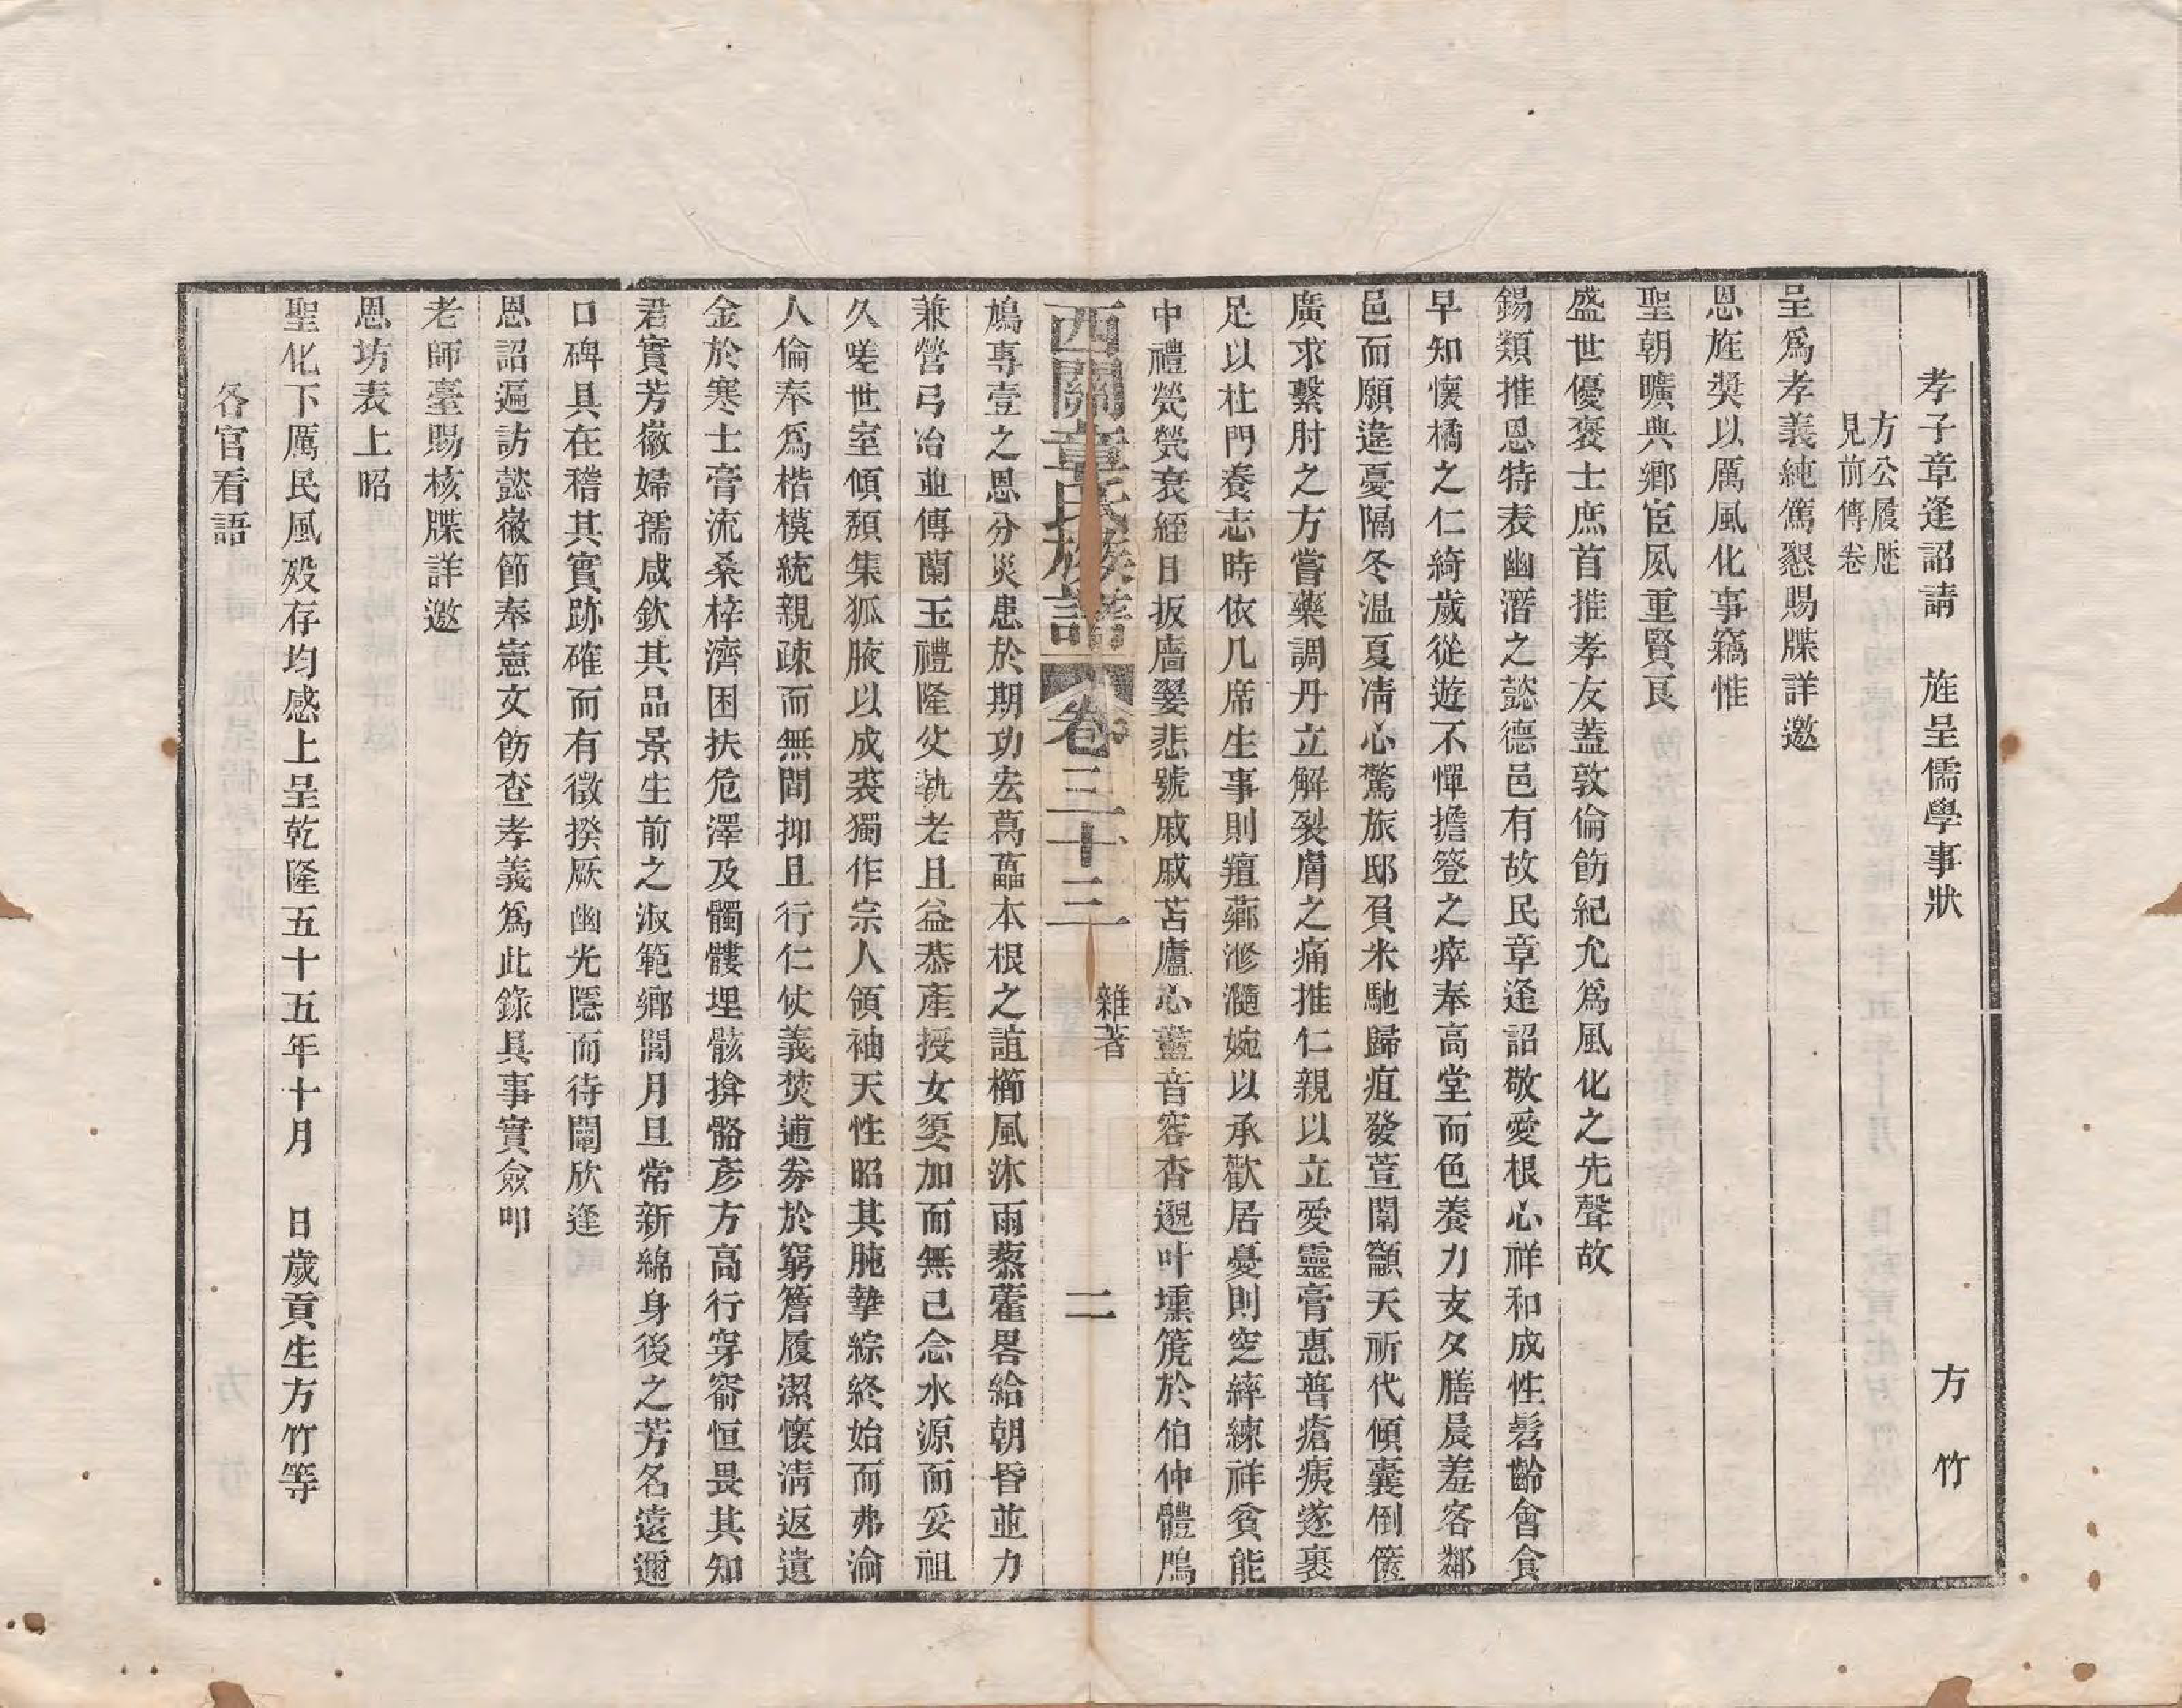 孝子章逢詔請　旌呈儒學事狀　方竹
方公履歷
見前傳卷
呈爲孝義純篤懇賜牒詳邀
恩旌獎以厲風化事竊惟
聖朝曠典鄉宦夙重賢良
盛世優褒士庶首推孝友蓋敦倫飭紀允爲風化之先聲故
錫類推恩特表幽潛之懿德邑有故民章逢詔敬愛根心祥和成性髫齡會食
早知懷橘之仁綺歲從遊不憚擔簦之瘁奉高堂而色養力支夕膳晨羞客鄰
邑而願違憂隔冬温夏凊心驚旅邸負米馳歸疽發萱闈籲天祈代傾囊倒篋
廣求繫肘之方嘗藥調丹立解裂膚之痛推仁親以立愛靈膏惠普瘡痍遂裹
足以杜門養志時依几席生事則羶薌滫瀡婉以承歡居憂則窆綍練祥貧能
中禮煢煢衰絰日扳廧翣悲號戚戚苫廬心藎音容杳邈叶壎箎於伯仲體鳲
西關章氏族譜　卷三十三　雜著　二
鳩專壹之恩分災患於期功宏葛藟本根之誼櫛風沐雨藜藿畧給朝昏並力
兼營弓冶並傳蘭玉禮隆父執老且益恭產授女嬃加而無已念水源而妥祖
久嗟世室傾頹集狐腋以成裘獨作宗人領袖天性昭其肫摯綜終始而弗渝
人倫奉爲楷模統親疎而無間抑且行仁仗義焚逋券於窮簷履潔懷淸返遺
金於寒士膏流桑梓濟困扶危澤及髑髏埋骸揜骼彥方高行穿窬恒畏其知
君實芳徽婦孺咸欽其品景生前之淑範鄉閭月旦常新綿身後之芳名遠邇
口碑具在稽其實跡確而有徵揆厥幽光隱而待闡欣逢
恩詔遍訪懿徽節奉憲文飭查孝義爲此錄具事實僉叩
老師臺賜核牒詳邀
恩坊表上昭
聖化下厲民風殁存均感上呈乾隆五十五年十月　日歲貢生方竹等
各官看語